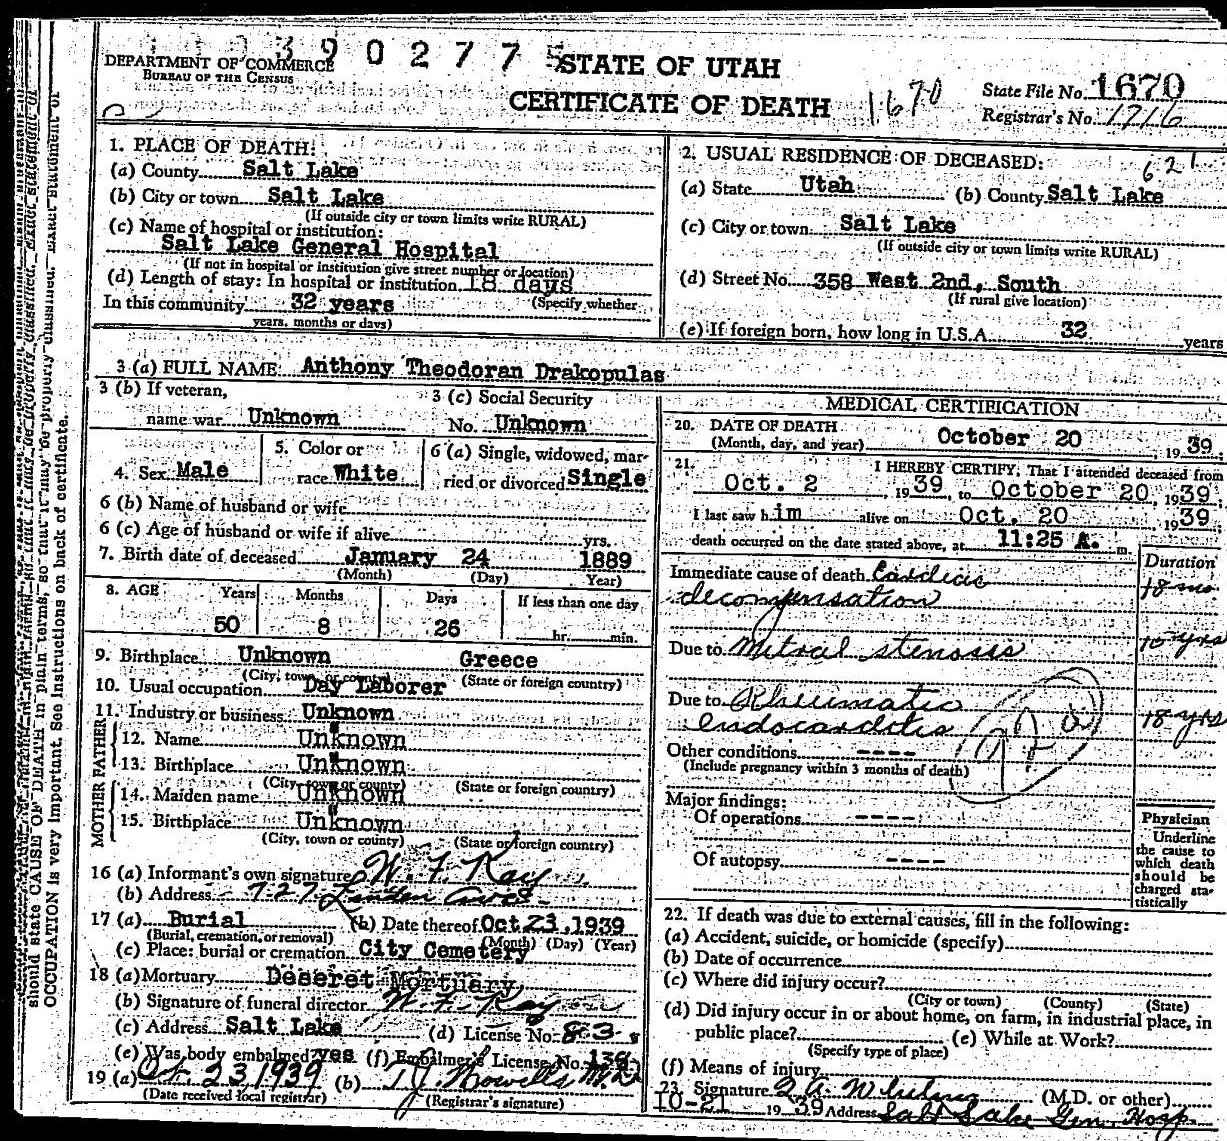 390277
DEPARTMENT OF COMMERCE
BUREAU OF THE CENSUS
STATE OF UTAH
CERTIFICATE OF DEATH
1670
State File No. 1670
Registrar's No. 1716
1. PLACE OF DEATH:
(a) County Salt Lake
(b) City or town Salt Lake
(If outside city or town limits write RURAL)
(c) Name of hospital or institution:
Salt Lake General Hospital
(If not in hospital or institution give street number or location)
(d) Length of stay: In hospital or institution 18 days
In this community 32 years (Specify whether
years, months or days)
2. USUAL RESIDENCE OF DECEASED: 621
(a) State Utah (b) County Salt Lake
(c) City or town Salt Lake
(If outside city or town limits write RURAL)
(d) Street No. 358 West 2nd, South
(If rural give location)
(e) If foreign born, how long in U.S.A. 32 years
3 (a) FULL NAME: Anthony Theodoran Drakopulas
3 (b) If veteran,
name war Unknown
3 (c) Social Security
No. Unknown
4. Sex Male
5. Color or
race White
6 (a) Single, widowed, mar-
ried or divorced Single
6 (b) Name of husband or wife
6 (c) Age of husband or wife if alive yrs.
7. Birth date of deceased January 24 1889
(Month) (Day) Year)
8. AGE Years Months Days If less than one day
50 8 26 hr. min.
9. Birthplace Unknown Greece
(City, town, or county) (State or foreign country)
10. Usual occupation Day Laborer
11. Industry or business Unknown
FATHER
12. Name Unknown
13. Birthplace Unknown
(City, town or county) (State or foreign country)
MOTHER
14. Maiden name Unknown
15. Birthplace Unknown
(City, town or county) (State or foreign country)
16 (a) Informant's own signature W. F. Kay
(b) Address 727 Linden Ave.
17 (a) Burial (b) Date thereof Oct 23, 1939
(Burial, cremation, or removal) (Month) (Day) (Year)
(c) Place: burial or cremation City Cemetery
18 (a) Mortuary Deseret Mortuary
(b) Signature of funeral director W. F. Kay
(c) Address Salt Lake (d) License No. 83
(e) Was body embalmed? yes (f) Embalmer's License No. 138
19 (a) Oct. 23, 1939 (b) T. J. Howells M.D.
(Date received local registrar) (Registrar's signature)
MEDICAL CERTIFICATION
20. DATE OF DEATH
(Month, day, and year) October 20, 1939;
21. I HEREBY CERTIFY, That I attended deceased from
Oct. 2, 1939, to October 20, 1939;
I last saw him alive on Oct. 20 1939
death occurred on the date stated above, at 11:25 A. m.
Duration
Immediate cause of death Cardiac 18 mo
decompensation
Due to Mitral stenosis 10 yrs
Due to Rheumatic
endocarditis 18 yrs
Other conditions ----
(Include pregnancy within 3 months of death)
Major findings:
Of operations ----
Of autopsy ----
Physician
Underline
the cause to
which death
should be
charged sta-
tistically
22. If death was due to external causes, fill in the following:
(a) Accident, suicide, or homicide (specify)
(b) Date of occurrence
(c) Where did injury occur?
(City or town) (County) (State)
(d) Did injury occur in or about home, on farm, in industrial place, in
public place? (e) While at Work?
(Specify type of place)
(f) Means of injury
23. Signature (M.D. or other)
10-21 1939 Address Salt Lake Gen. Hosp.
should state CAUSE OF DEATH in plain terms, so that it may be properly classified. Exact statement of
OCCUPATION is very important. See instructions on back of certificate.